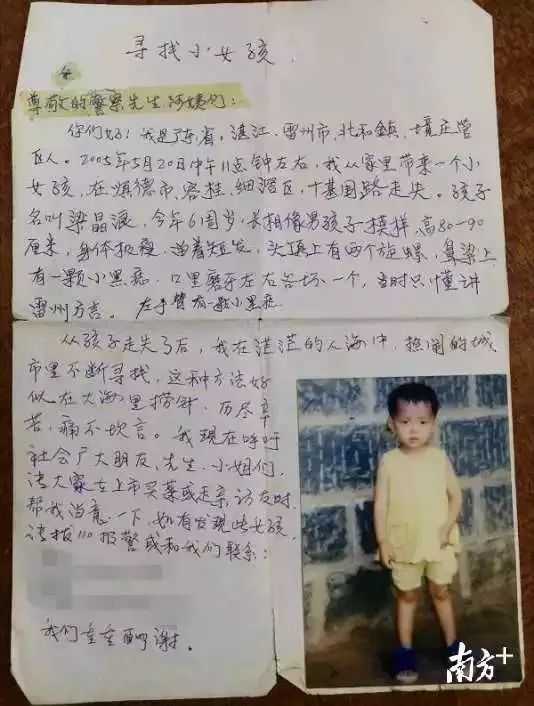 寻找小女孩
尊敬的警察先生阿姨们：
你们好！我是广东省，湛江，雷州市，北和镇，境庄管
区人。2005年5月20日中午11点钟左右，我从家里带来一个小
女孩，在顺德市，容桂，细滘区，十基围路走失。孩子
名叫梁晶浪，今年6周岁，长相像男孩子模样，高80—90
厘米，身体极瘦，留着短发，头顶上有两个旋螺，鼻梁上
有一颗小黑痣，口里磨牙左右各坏一个，当时只懂讲
雷州方言。左手臂有一颗小黑痣
从孩子走失了后，我在茫茫的人海中，热闹的城
市里不断寻找，这种方法好
似在大海里捞针，历尽辛
苦，痛不坎言。我现在呼吁
社会广大朋友，先生，小姐们，
请大家在上市买菜或走亲访友时，
帮我留意一下，如有发现此女孩，
请拨110报警或和我们联系：
我们重重酬谢。
南方+